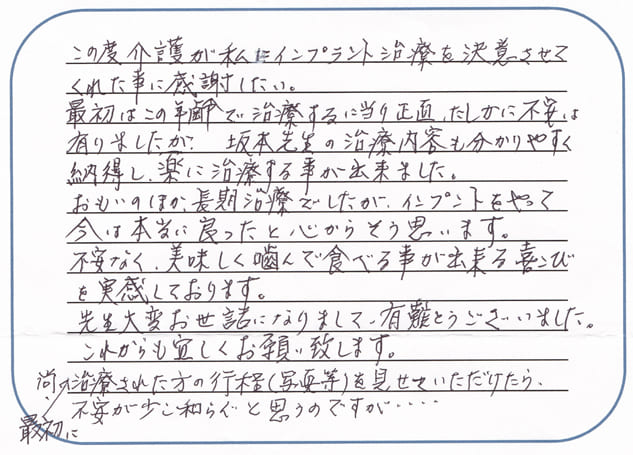 この度介護が私にインプラント治療を決意させて
くれた事に感謝したい。
最初はこの年齢で治療するに当り正直、たしかに不安は
有りましたが、坂本先生の治療内容も分かりやすく
納得し、楽に治療する事が出来ました。
おもいのほか、長期治療でしたが、インプントをやって
今は本当に良かったと心からそう思います。
不安なく、美味しく噛んで食べる事が出来る喜こび
を実感しております。
先生大変お世話になりまして、有難とうございました。
これからも宜しくお願い致します。
尚、治療された方の行程(写真等)を見せていただけたら、
不安が少し和らぐと思うのですが・・・・
最初に